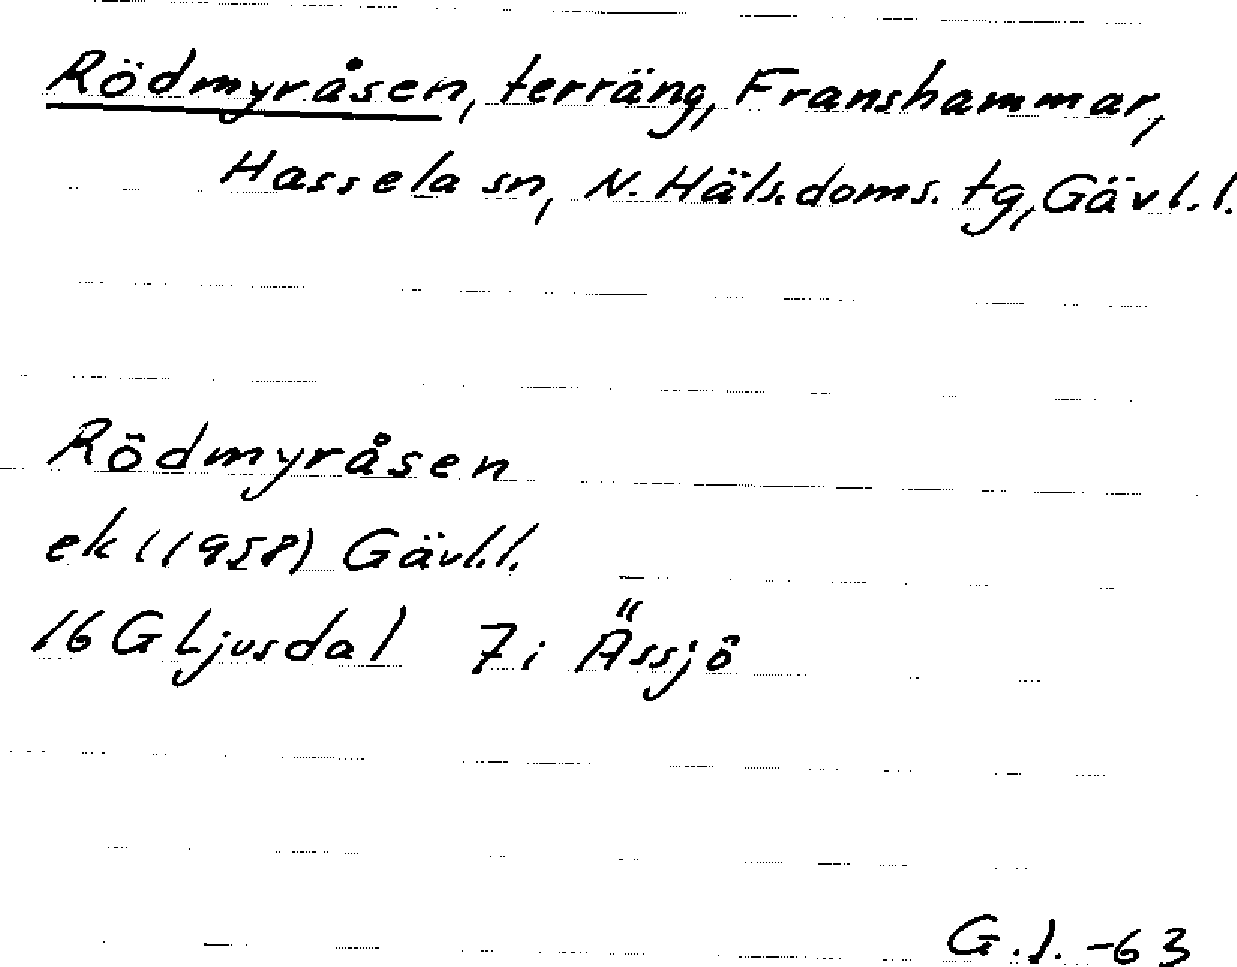 Rödmyråsen, terräng, Franshammar,
Hassela sn, N. Häls. doms. tg, Gävl. l.
Rödmyråsen
ek (1958) Gävl. l.
16 G Ljusdal 7i Ässjö
G. J. -63